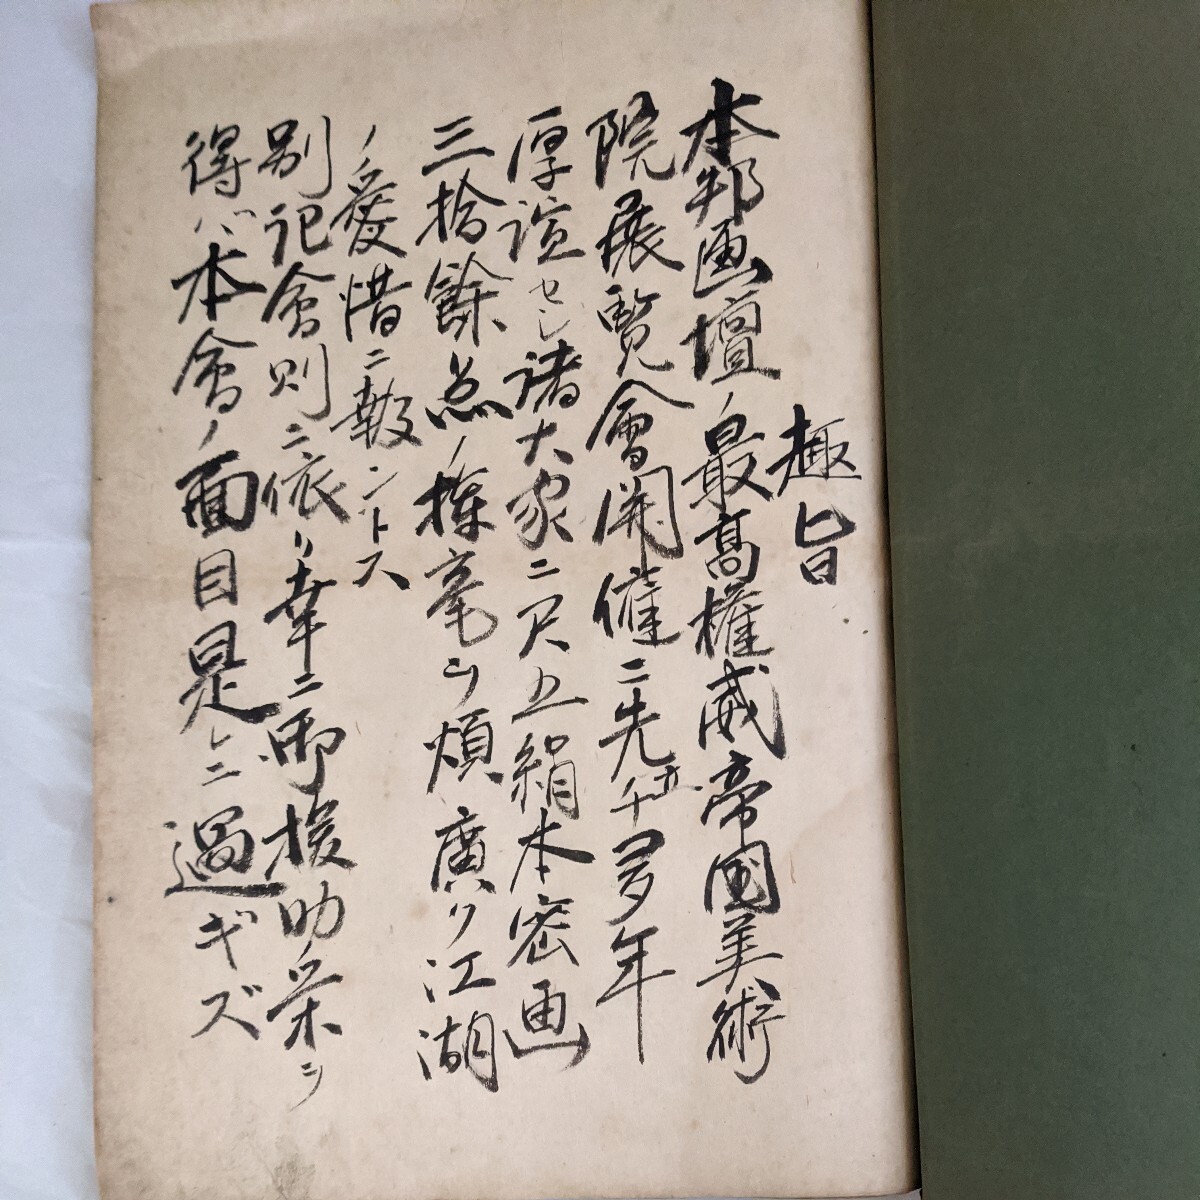 趣旨
本邦画壇ノ最高権威帝国美術
院展覧會開催ニ先千五多年
厚誼セシ諸大家ニ尺五絹本密画
三拾餘点ノ揮毫ヲ煩廣ク江湖
ノ愛惜ニ報ントス
別記會則ニ依リ幸ニ御援助栄ヲ
得バ本會ノ面目是レニ過ギズ